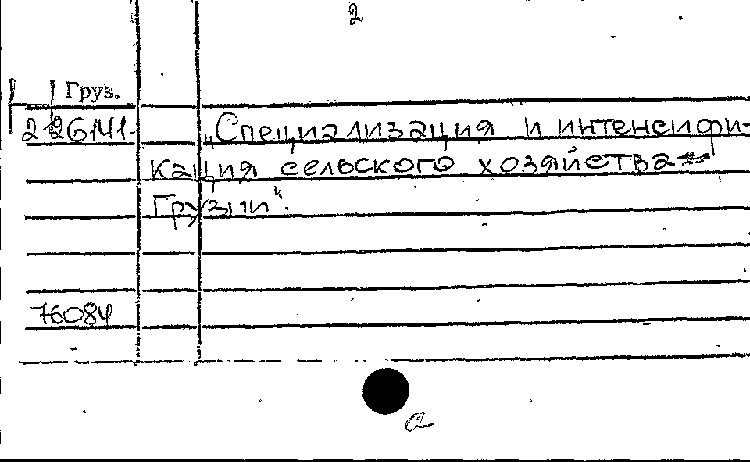 2
Груз.
„Специализация и интенсифи-
кация сельского хозяйства
Грузии".
76084